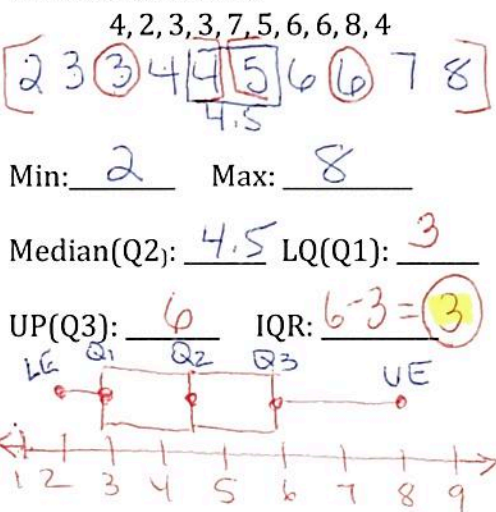 4, 2, 3, 3, 7, 5, 6, 6, 8, 4
2 3 3 4 4 5 6 6 7 8
4.5
Min: 2 Max: 8
Median(Q2): 4.5 LQ(Q1): 3
UP(Q3): 6 IQR: 6-3=3
LE Q1 Q2 Q3 UE
1 2 3 4 5 6 7 8 9